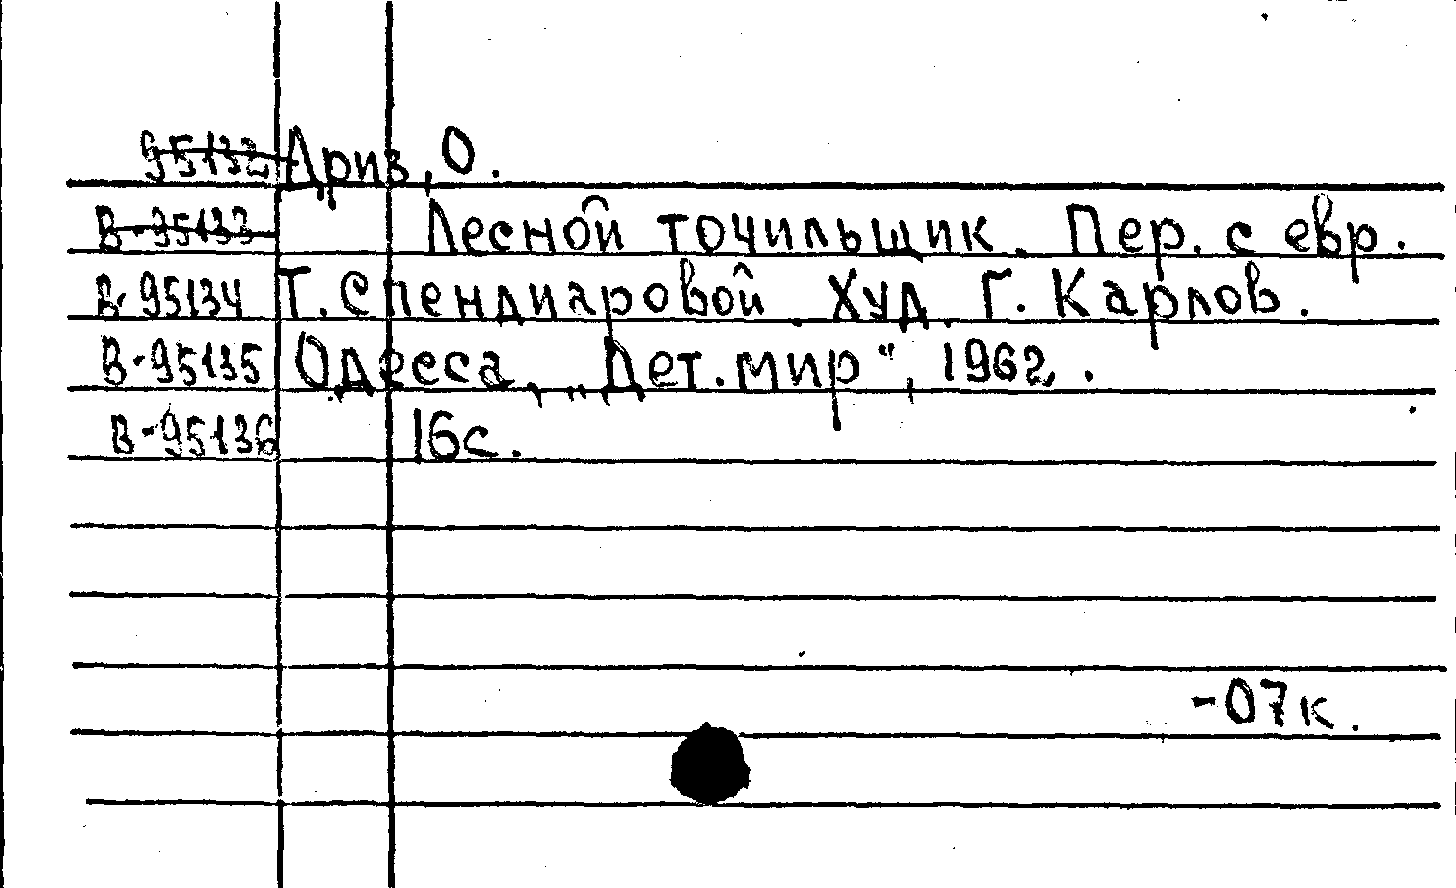 95132 Дриз, О.
В-95133 Лесной точильщик. Пер. с евр.
В-95134 Т. Спендиаровой. Худ. Г. Карлов.
В-95135 Одесса, „Дет. мир“, 1962.
В-95136 16с.
-07к.